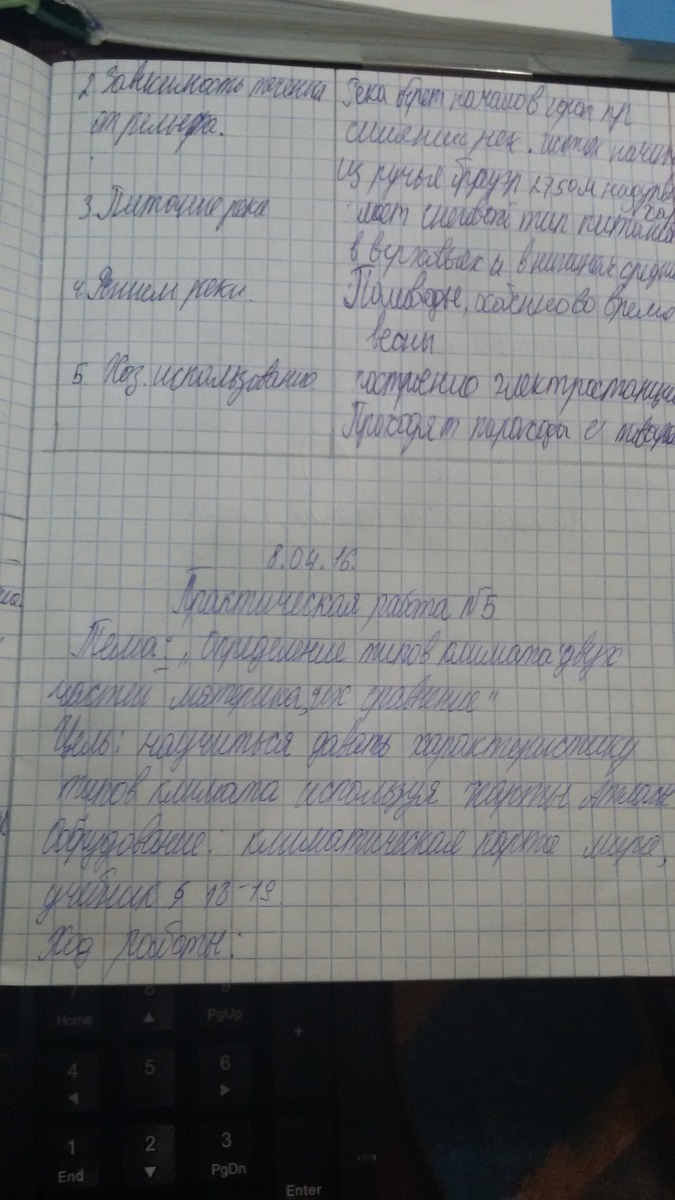 2 Зависимость течения
от рельефа.
Река берет начало в горах пр
слиянии рек. исток начин
из ручья 2750м над уров
3. Питание реки
снеговой тип питания
в верховьях и в нижнем средн
4. Режим реки.
Половодн, особенно во время
весны
5 Хоз. использование.
построено электростанци
Проходят пароходы и
8.04.16.
Практическая работа №5
Тема: „Определение типов климата двух
частей материка, их сравнение"
Цель: научиться давать характеристику
типов климата используя карты Атласа
Оборудование: климатическая карта мира,
учебник § 18-19.
Ход работы:
7 Home 8 9 PgUp +
4 5 6
1 End 2 3 PgDn
Enter